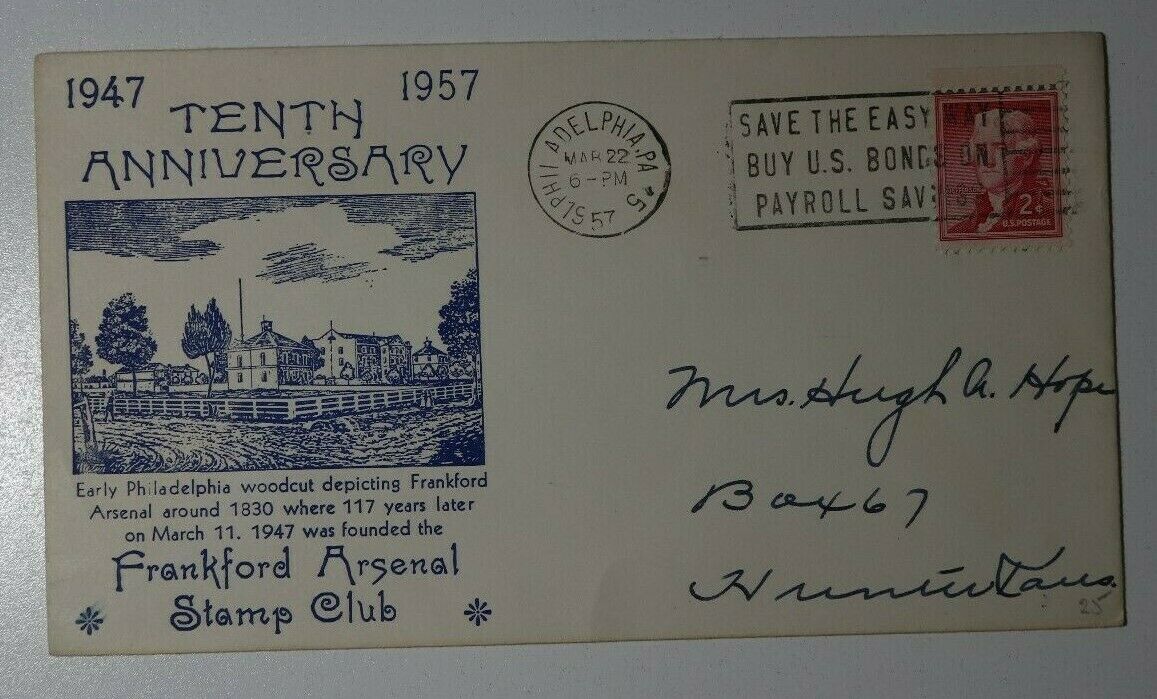 1947 1957
TENTH
ANNIVERSARY
Early Philadelphia woodcut depicting Frankford
Arsenal around 1830 where 117 years later
on March 11, 1947 was founded the
Frankford Arsenal
Stamp Club
PHILADELPHIA, PA
MAR 22
6-PM
57
SAVE THE EASY WAY
BUY U.S. BONDS ON
PAYROLL SAV
2¢
U.S. POSTAGE
Mrs. Hugh A. Hope
Box 67
Hunter Kans.
25